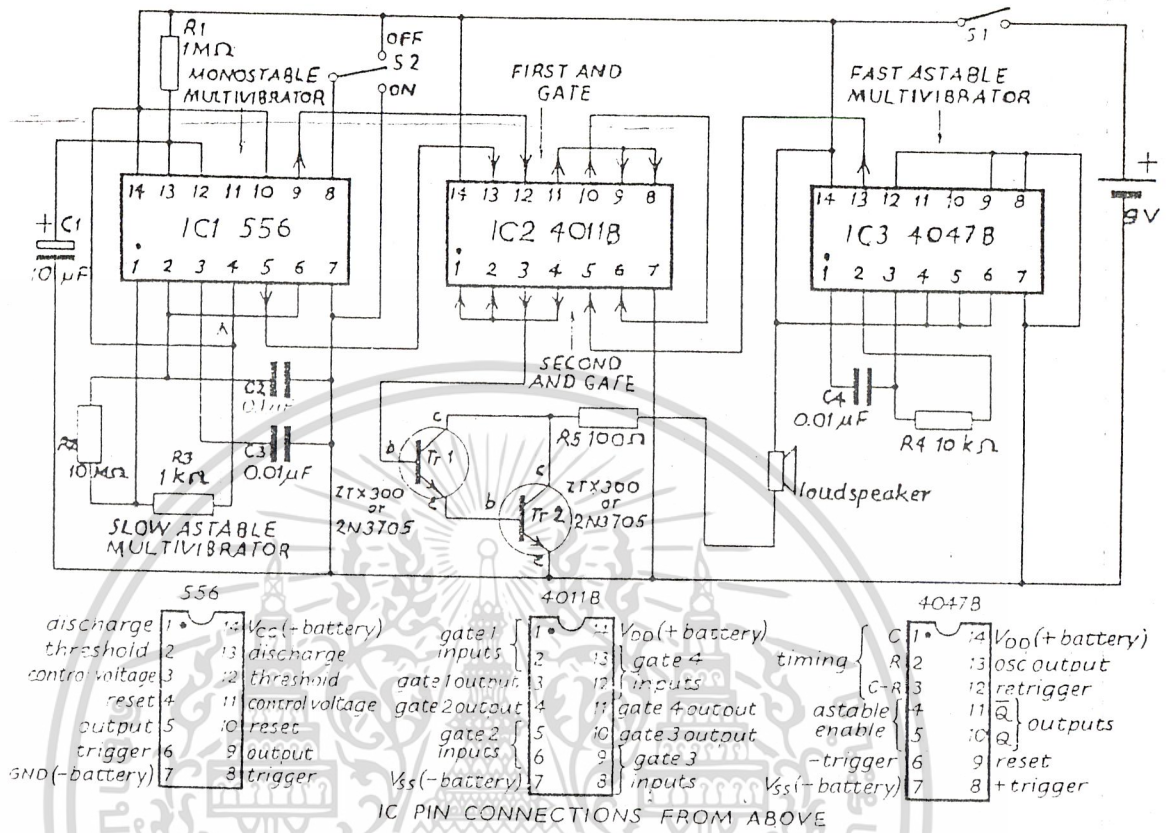 R1
1MΩ
MONOSTABLE
MULTIVIBRATOR
OFF
S2
ON
FIRST AND
GATE
FAST ASTABLE
MULTIVIBRATOR
S1
+
9V
+ C1
10 μF
14 13 12 11 10 9 8
IC1 556
1 2 3 4 5 6 7
14 13 12 11 10 9 8
IC2 4011B
1 2 3 4 5 6 7
14 13 12 11 10 9 8
IC3 4047B
1 2 3 4 5 6 7
SECOND
AND GATE
C2
C3
0.01μF
10 MΩ
R3
1 kΩ
SLOW ASTABLE
MULTIVIBRATOR
b c e
Tr 1
ZTX300
or
2N3705
b c e
Tr 2
ZTX300
or
2N3705
R5 100Ω
loudspeaker
C4
0.01μF
R4 10 kΩ
556
discharge 1 14 VCC (+battery)
threshold 2 13 discharge
control voltage 3 12 threshold
reset 4 11 control voltage
output 5 10 reset
trigger 6 9 output
GND (-battery) 7 8 trigger
4011B
gate 1 inputs 1 14 VDD (+battery)
2 13 gate 4
gate 1 output 3 12 inputs
gate 2 output 4 11 gate 4 output
gate 2 5 10 gate 3 output
inputs 6 9 gate 3
VSS (-battery) 7 8 inputs
4047B
timing C 1 14 VDD (+battery)
R 2 13 osc output
C-R 3 12 retrigger
astable 4 11 Q̅ outputs
enable 5 10 Q
-trigger 6 9 reset
VSS (-battery) 7 8 +trigger
IC PIN CONNECTIONS FROM ABOVE